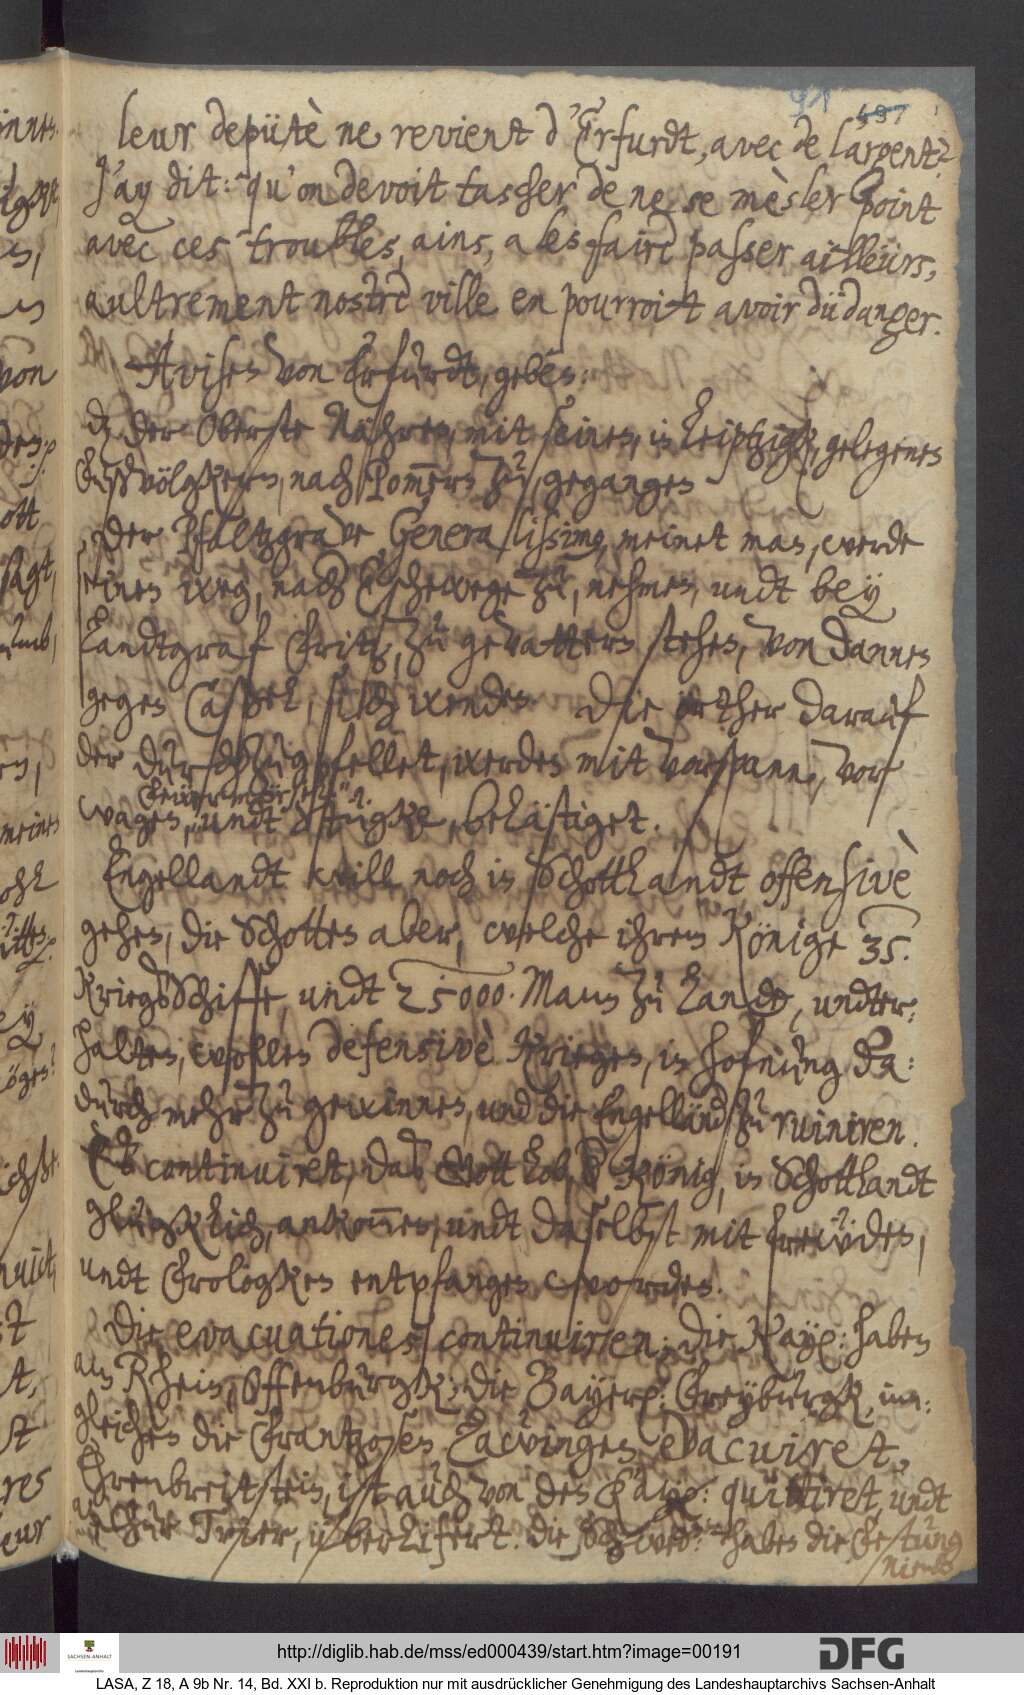 91 497
leur depütè ne revient d'Erfurdt, avec de l'argent.
J'ay dit: qu'on devoit tascher de ne se mèsler point
avec ces troubles, ains, a les faire passer ailleurs,
aultrement nostre ville en pourroit avoir dü danger.
Avisen von Erfurdt, geben:
dz der Oberste Nähren, mit seinen, in Leiptzigk, gelegenen
Fußvölgkern, nach Pom̄ern zu, gegangen
Der Pfaltzgrave Generalissimg, meinet man, werde
seinen weg, nach Eschewege zu, nehmen, undt bey
Landtgraf Fritz, zu gevattern stehen, von dannen
gegen Caßel, sich wenden. Die örther darauf
der durchzug fellet, werden mit vorspann, vor
wagen, undt Stügke, belästiget.
Engellandt will noch in Schottlandt offensivè
gehen, die Schotten aber, welche ihrem Könige 35.
KriegsSchiffe, undt 25000. Mann zu Lande, undter:
halten, wollen defensivè Kriegen, in hofnung da:
durch mehr zu gewinnen, und die Engelländ. zu ruiniren.
Es continuiret, das Gott lob, der König, in Schottlandt
glügklich, ankom̄en, undt daselbst mit frewden,
undt Frologken entpfangen worden.
Die evacuationes continuiren: die Kayß: haben
am Rhein, Offenburgk: die Bayerß: Freyburgk, im:
gleichen die Frantzosen Lawingen evacuiret,
Ehrenbreitstein, ist auch von den Kayß: quittiret, undt
an Chur Trier, überlifert. die Schwed: haben die Festung
http://diglib.hab.de/mss/ed000439/start.htm?image=00191
DFG
SACHSEN-ANHALT
LASA, Z 18, A 9b Nr. 14, Bd. XXI b. Reproduktion nur mit ausdrücklicher Genehmigung des Landeshauptarchivs Sachsen-Anhalt